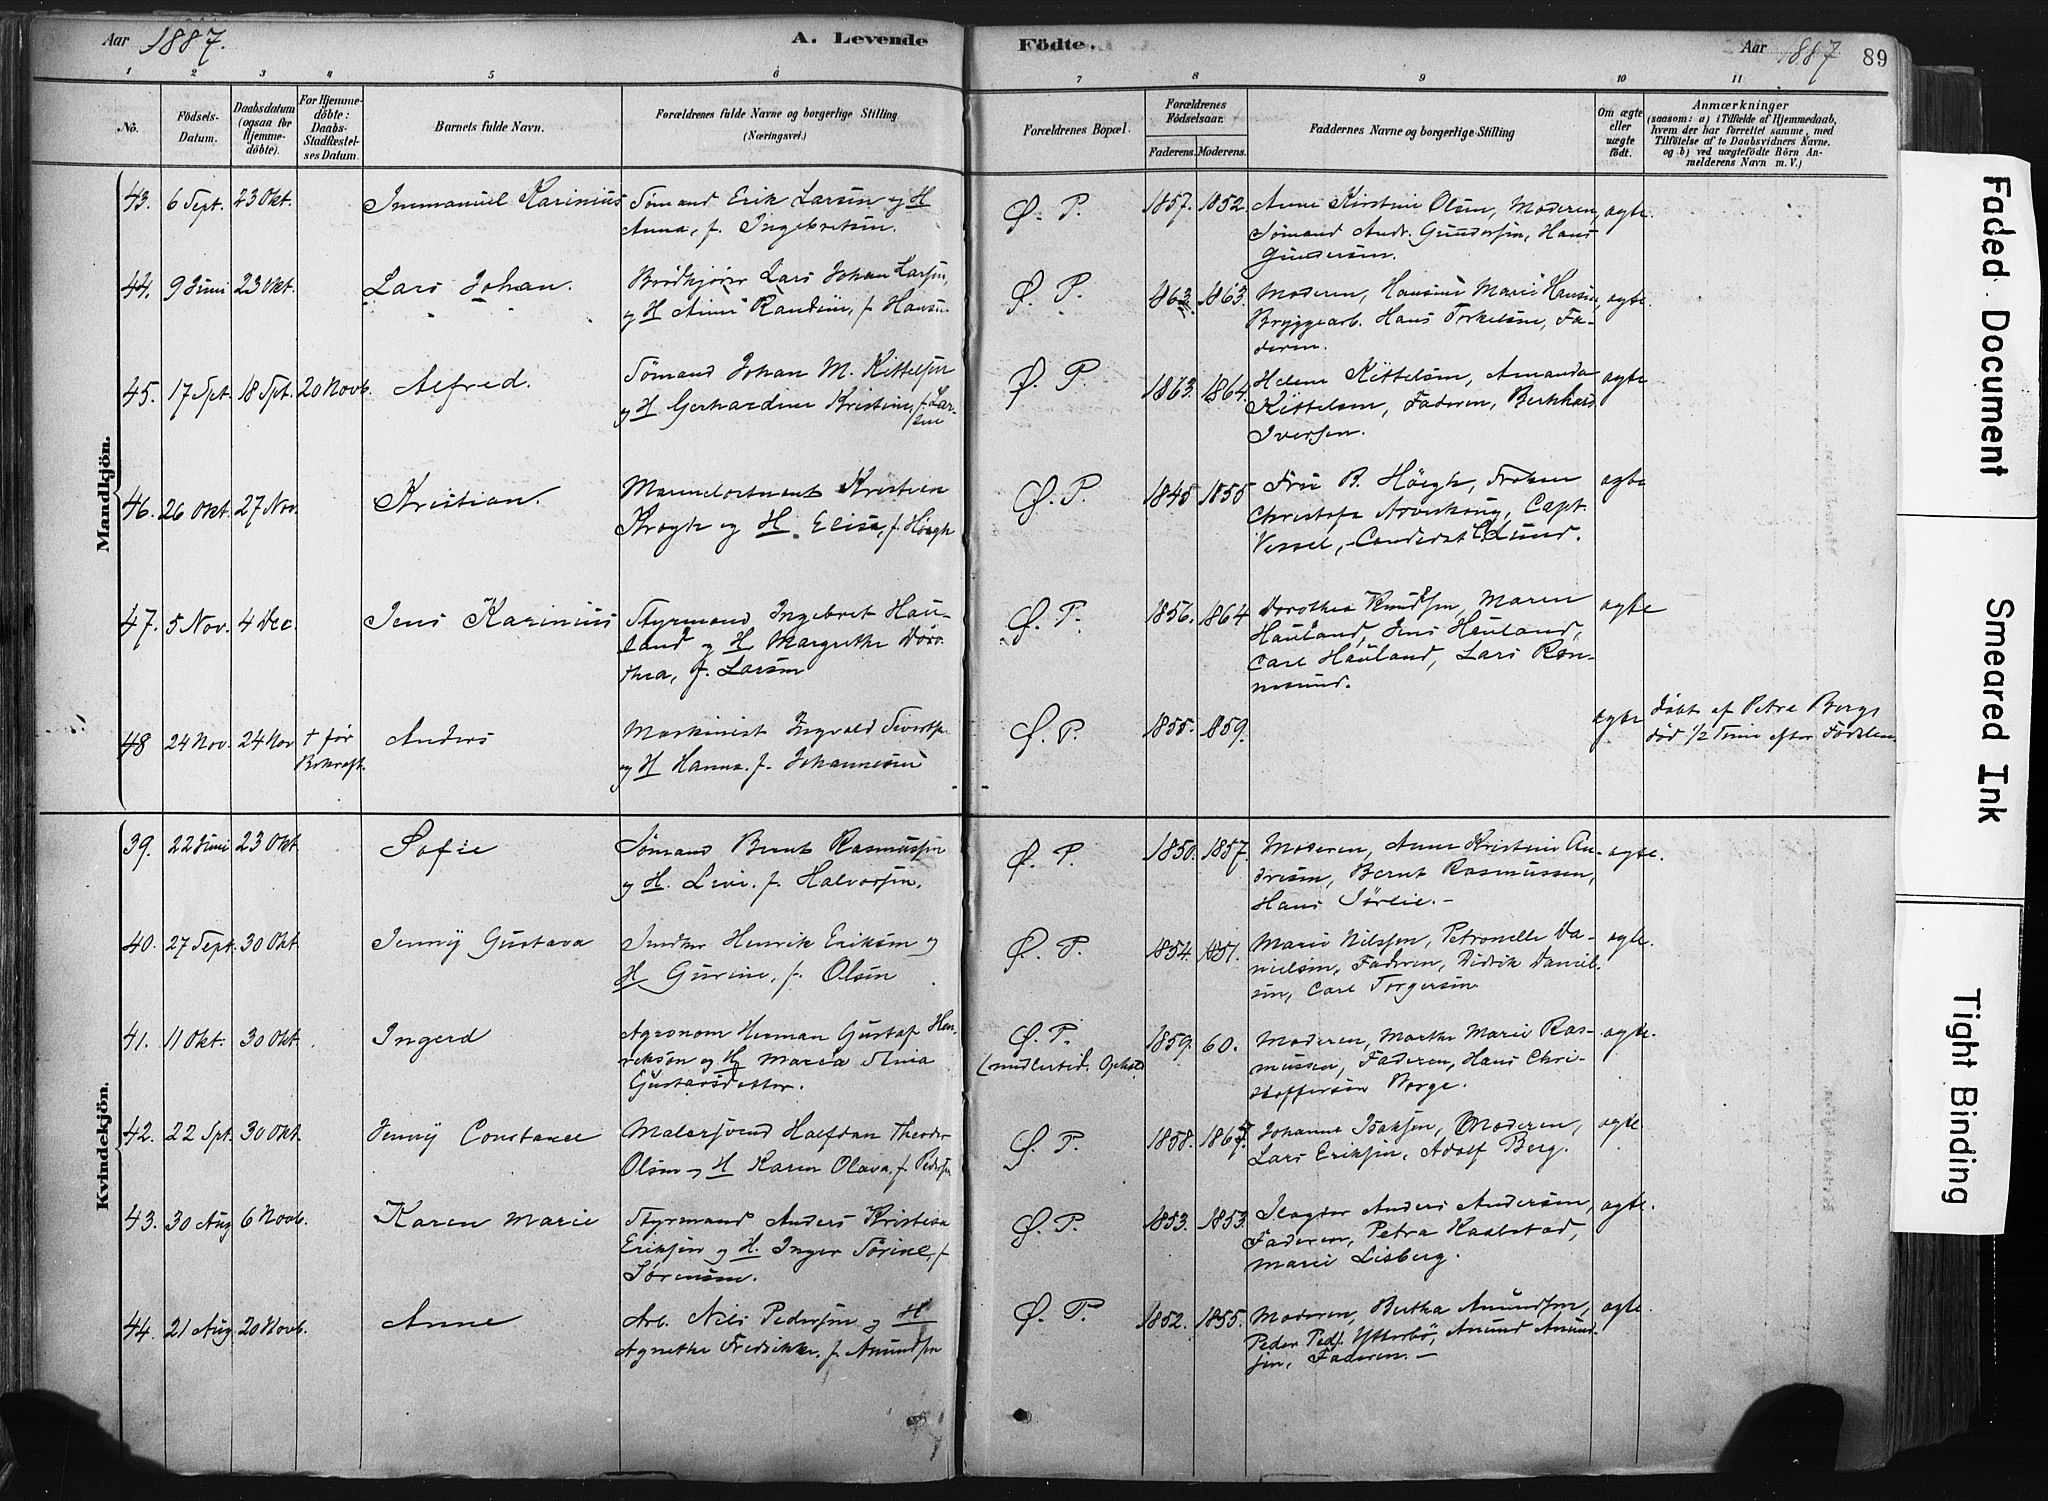 Aar 1887. A. Levende Födte. Aar 1887 89
1 2 3 4 5 6 7 8 9 10 11
No.
Födsels-Datum.
Daabsdatum (ogsaa for Hjemme-döbte).
For Hjemme-döbte: Daabs-Stadfæstel-ses Datum.
Barnets fulde Navn.
Forældrenes fulde Navne og borgerlige Stilling (Næringsvei).
Forældrenes Bopæl.
Forældrenes Födselsaar.
Faderens. Moderens.
Faddernes Navne og borgerlige Stilling
Om ægte eller uægte födt.
Anmærkninger
(saasom: a) i Tilfælde af Hjemmedaab,
hvem der har forrettet samme, med
Tilföielse af to Daabsvidners Navne.
og b) ved uægtefödte Börn An-
melderens Navn m. V.)
Mandkjön.
43. 6 Sept. 23 Okt. Immanuel Karinius Sømand Erik Larsen og H
Anna, f. Ingebretsen.
Ø. P. 1857. 1852. Anne Kirstine Olsen, Moderen, ægte.
Sømand Andr. Gundersen, Hans
Gundersen.
44. 9 Juni 23 Okt. Lars Johan. Brødkjører Lars Johan Larsen,
og H Anne Randine, f. Hansen
Ø. P. 1863. 1863. Moderen, Hansine Marie Hansen, ægte.
Bryggearb. Hans Terkelsen, Fa-
deren.
45. 17 Spt. 18 Spt. 20 Novb. Alfred. Sømand Johan M. Kittelsen
og H Gerhardine Kristine, f. Lar-
sen
Ø. P. 1863. 1864. Helene Kittelsen, Amanda ægte
Kittelsen, Faderen, Bernhard
Iversen.
46. 26 Okt. 27 Nov. Kristian. Kristian
Krogh og H. Elisa, f. Høegh
Ø. P. 1845 1855 Fru B. Høegh, Frøken ægte
Capt.
Vessel, Candidat Lund.
47. 5 Nov. 4 Dec. Jens Karinius Styrmand Ingebret Hau-
land og H. Margrethe Doro-
thea, f. Larsen
Ø. P. 1856. 1864 Dorothea Knudsen, Maren ægte
Hauland, Jens Hauland,
Carl Hauland, Lars Ron-
nesund.
48 24 Nov. 24 Nov † før Bekræft. Anders Maskinist Ingvald Sivertsen
og H Hanna. f. Johannesen
Ø. P. 1855. 1859. ægte døbt af Petra Berge
død 1/2 Time efter Fødslen
Kvindekjön.
39. 22 Juni 23 Okt Sofie Sømand Bernt Rasmussen
og H. Livi. f. Halvorsen.
Ø. P. 1850. 1857. Moderen, Anne Kristine An- ægte.
dresen, Bernt Rasmussen,
Hans Sørlie. -
40. 27 Sept. 30 Okt. Jenny Gustava Henrik Eriksen og
H Gurine, f. Olsen
Ø. P. 1854. 1851. Marie Nilssen, Petronelle Da- ægte.
nielsen, Faderen, Didrik Daniel-
sen, Carl Torgersen
41. 11 Okt. 30 Okt. Ingerd Agronom Herman Gustaf Hen-
riksen og H Maria Stina
Gustafsdotter.
Ø. P. (midlertid. Ophold) 1859. 60. Moderen, Marthe Marie Ras- ægte.
mussen, Faderen, Hans Chri-
stoffersen Borge.
42. 22 Spt. 30 Okt. Jenny Constance Malersvend Halfdan Theodor
Olsen og H Karen Olava, f. Pedersen
Ø. P. 1858. 1867. Johanne Isaksen, Moderen, ægte.
Lars Eriksen, Adolf Berg.
43. 30 Aug 6 Novb. Karen Marie Styrmand Anders Kristian
Eriksen og H. Inger Sørine, f.
Sørensen.
Ø. P. 1853. 1853. Anders Andersen, ægte.
Faderen, Petra Kaalstad,
Marie Lisberg.
44. 21 Aug 20 Novb. Anne Arb. Nils Pedersen og H
Agnethe Fredrikke. f. Amundsen
Ø. P. 1852. 1855. Moderen, Bertha Amundsen, ægte
Peder Peds. Ytterbø, Amund Amund-
sen, Faderen. -
Faded Document
Smeared Ink
Tight Binding